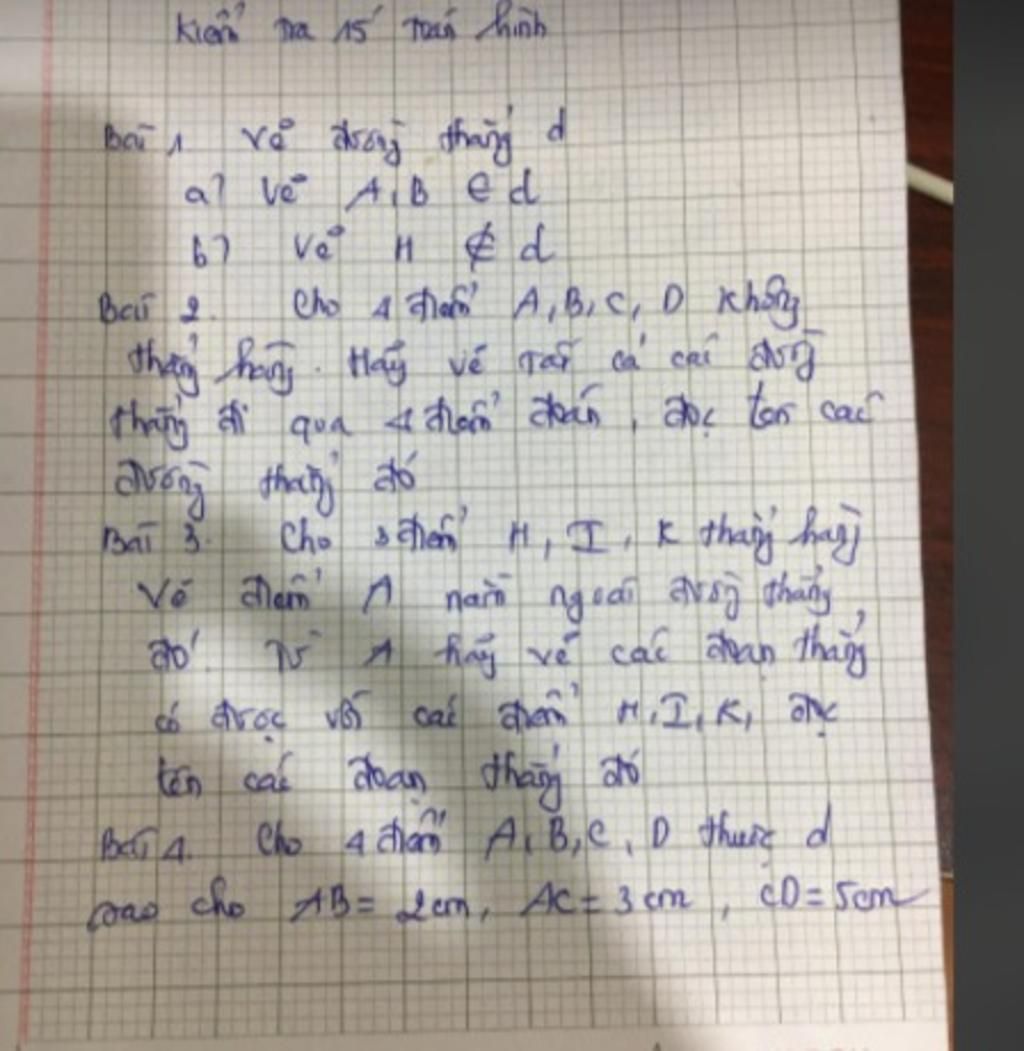 Kiểm tra 15' toán hình
Bài 1 Vẽ đường thẳng d
a) Vẽ A, B ∈ d
b) Vẽ H ∉ d
Bài 2. Cho 4 điểm A, B, C, D không
thẳng hàng. Hãy vẽ tất cả các đường
thẳng đi qua 4 điểm đoán, đọc tên các
đường thẳng đó
Bài 3. Cho 3 điểm H, I, K thẳng hàng
Vẽ điểm A nằm ngoài đường thẳng
đó. Từ A hãy vẽ các đoạn thẳng
có được với các điểm H, I, K, đọc
tên các đoạn thẳng đó
Bài 4. Cho 4 điểm A, B, C, D thuộc d
sao cho AB = 2cm, AC = 3cm, CD = 5cm